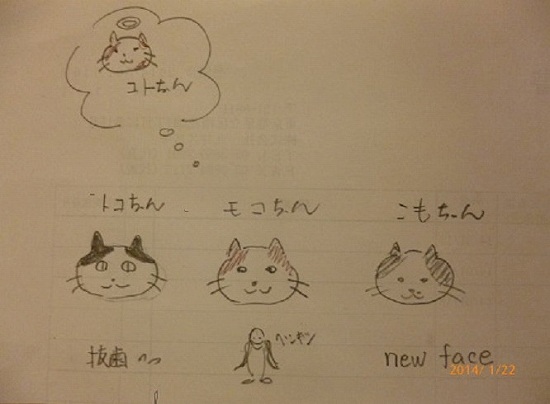 コトちゃん
トコちゃん
モコちゃん
こもちゃん
抜歯へっ
ペンギン
new face
2014/1/22